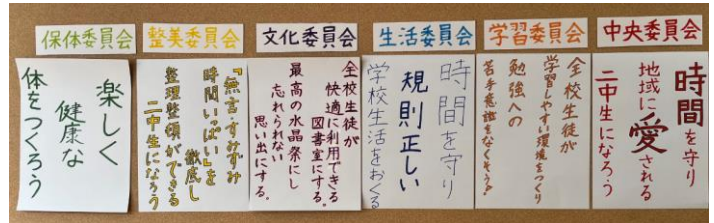 保体委員会
楽しく
健康な
体をつくろう
整美委員会
『無言・すみずみ
時間いっぱい』を
徹底し
整理整頓ができる
二中生になろう
文化委員会
全校生徒が
快適に利用できる
図書室にする。
最高の水晶祭にし
忘れられない
思い出にする。
生活委員会
時間を守り
規則正しい
学校生活をおくる
学習委員会
全校生徒が
学習しやすい環境をつくり
勉強への
苦手意識をなくそう!
中央委員会
時間を守り
地域に愛される
二中生になろう